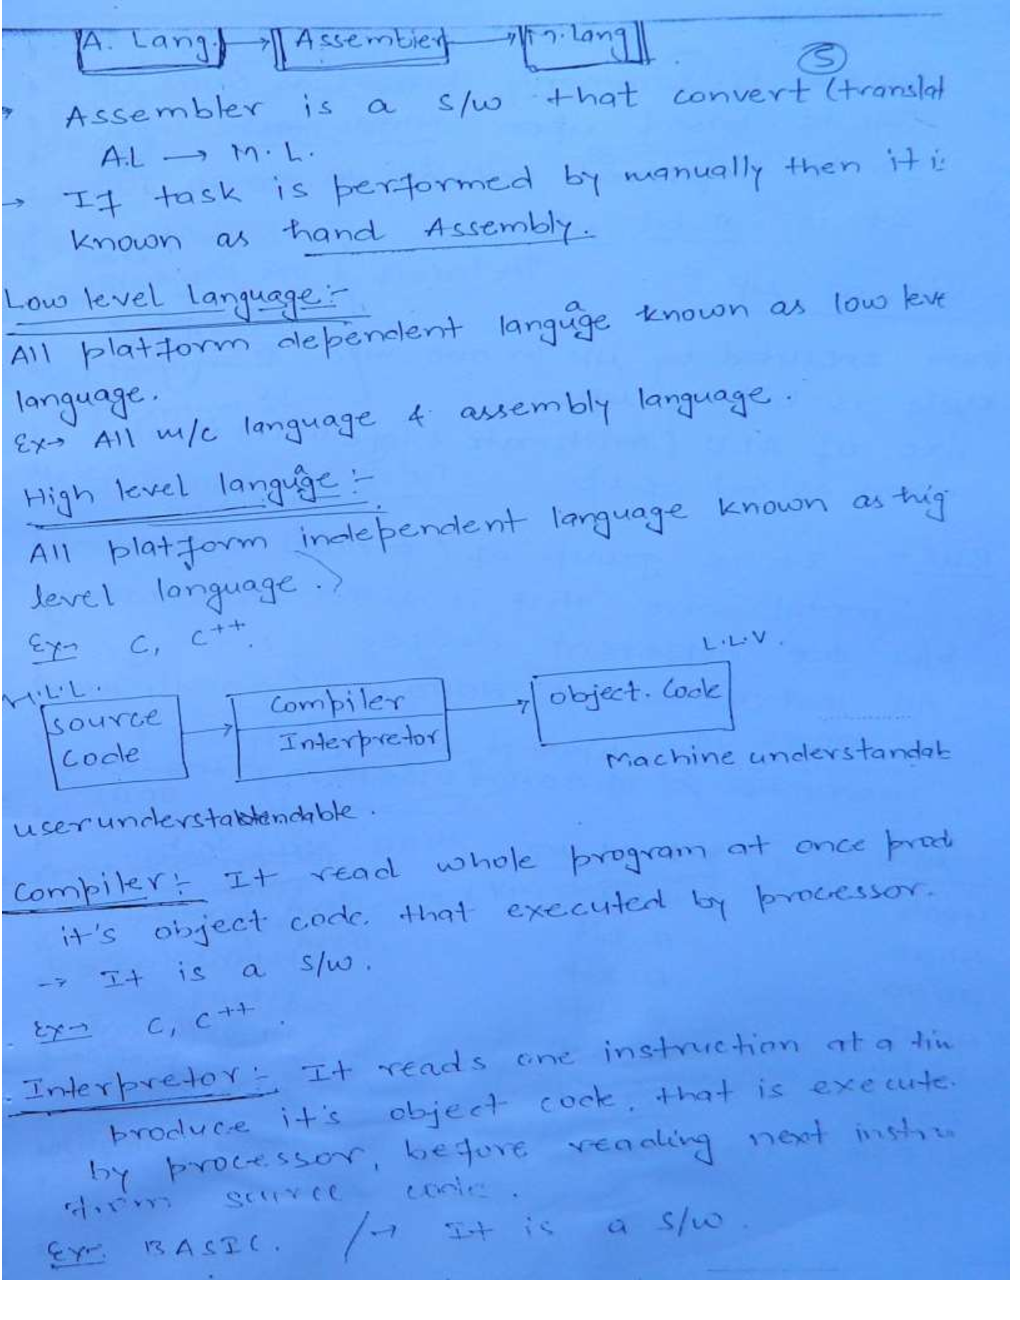 A. Lang. → Assembler → m. Lang
5
→ Assembler is a s/w that convert (translat
A.L → M.L.
→ If task is performed by manually then it i
known as hand Assembly.
Low level language:-
All platform dependent language known as low leve
language.
Ex→ All m/c language & assembly language.
High level language:-
All platform independent language known as hig
level language.
Ex→ C, C++.
L.L.V.
H.L.L.
source Code → Compiler Interpretor → object. Code
Machine understandab
user understandable.
Compiler:- It read whole program at once prod
it's object code. that executed by processor.
→ It is a s/w.
Ex→ C, C++.
Interpretor:- It reads one instruction at a tim
produce it's object code, that is execute.
by processor, before reading next instru
from source code.
Ex→ BASIC. /→ It is a s/w.